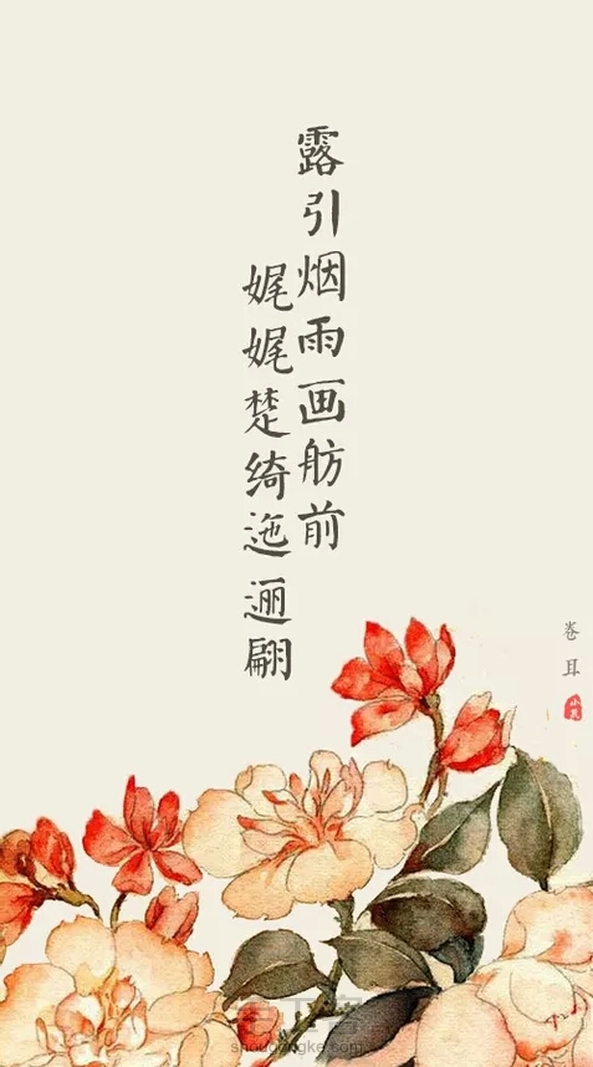 露引烟雨画舫前
娓娓楚绮迤逦翩
卷耳
shougongke.com